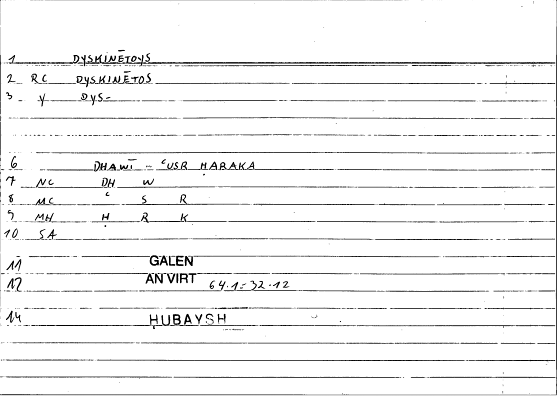 1 DYSKINĒTOYS
2 RC DYSKINĒTOS
3 y DYS-
6 DHAWĪ - ʿUSR ḤARAKA
7 NC DH W
8 MC ʿ S R
9 MH Ḥ R K
10 SA
11 GALEN
12 AN VIRT 64.1 = 32.12
14 ḤUBAYSH